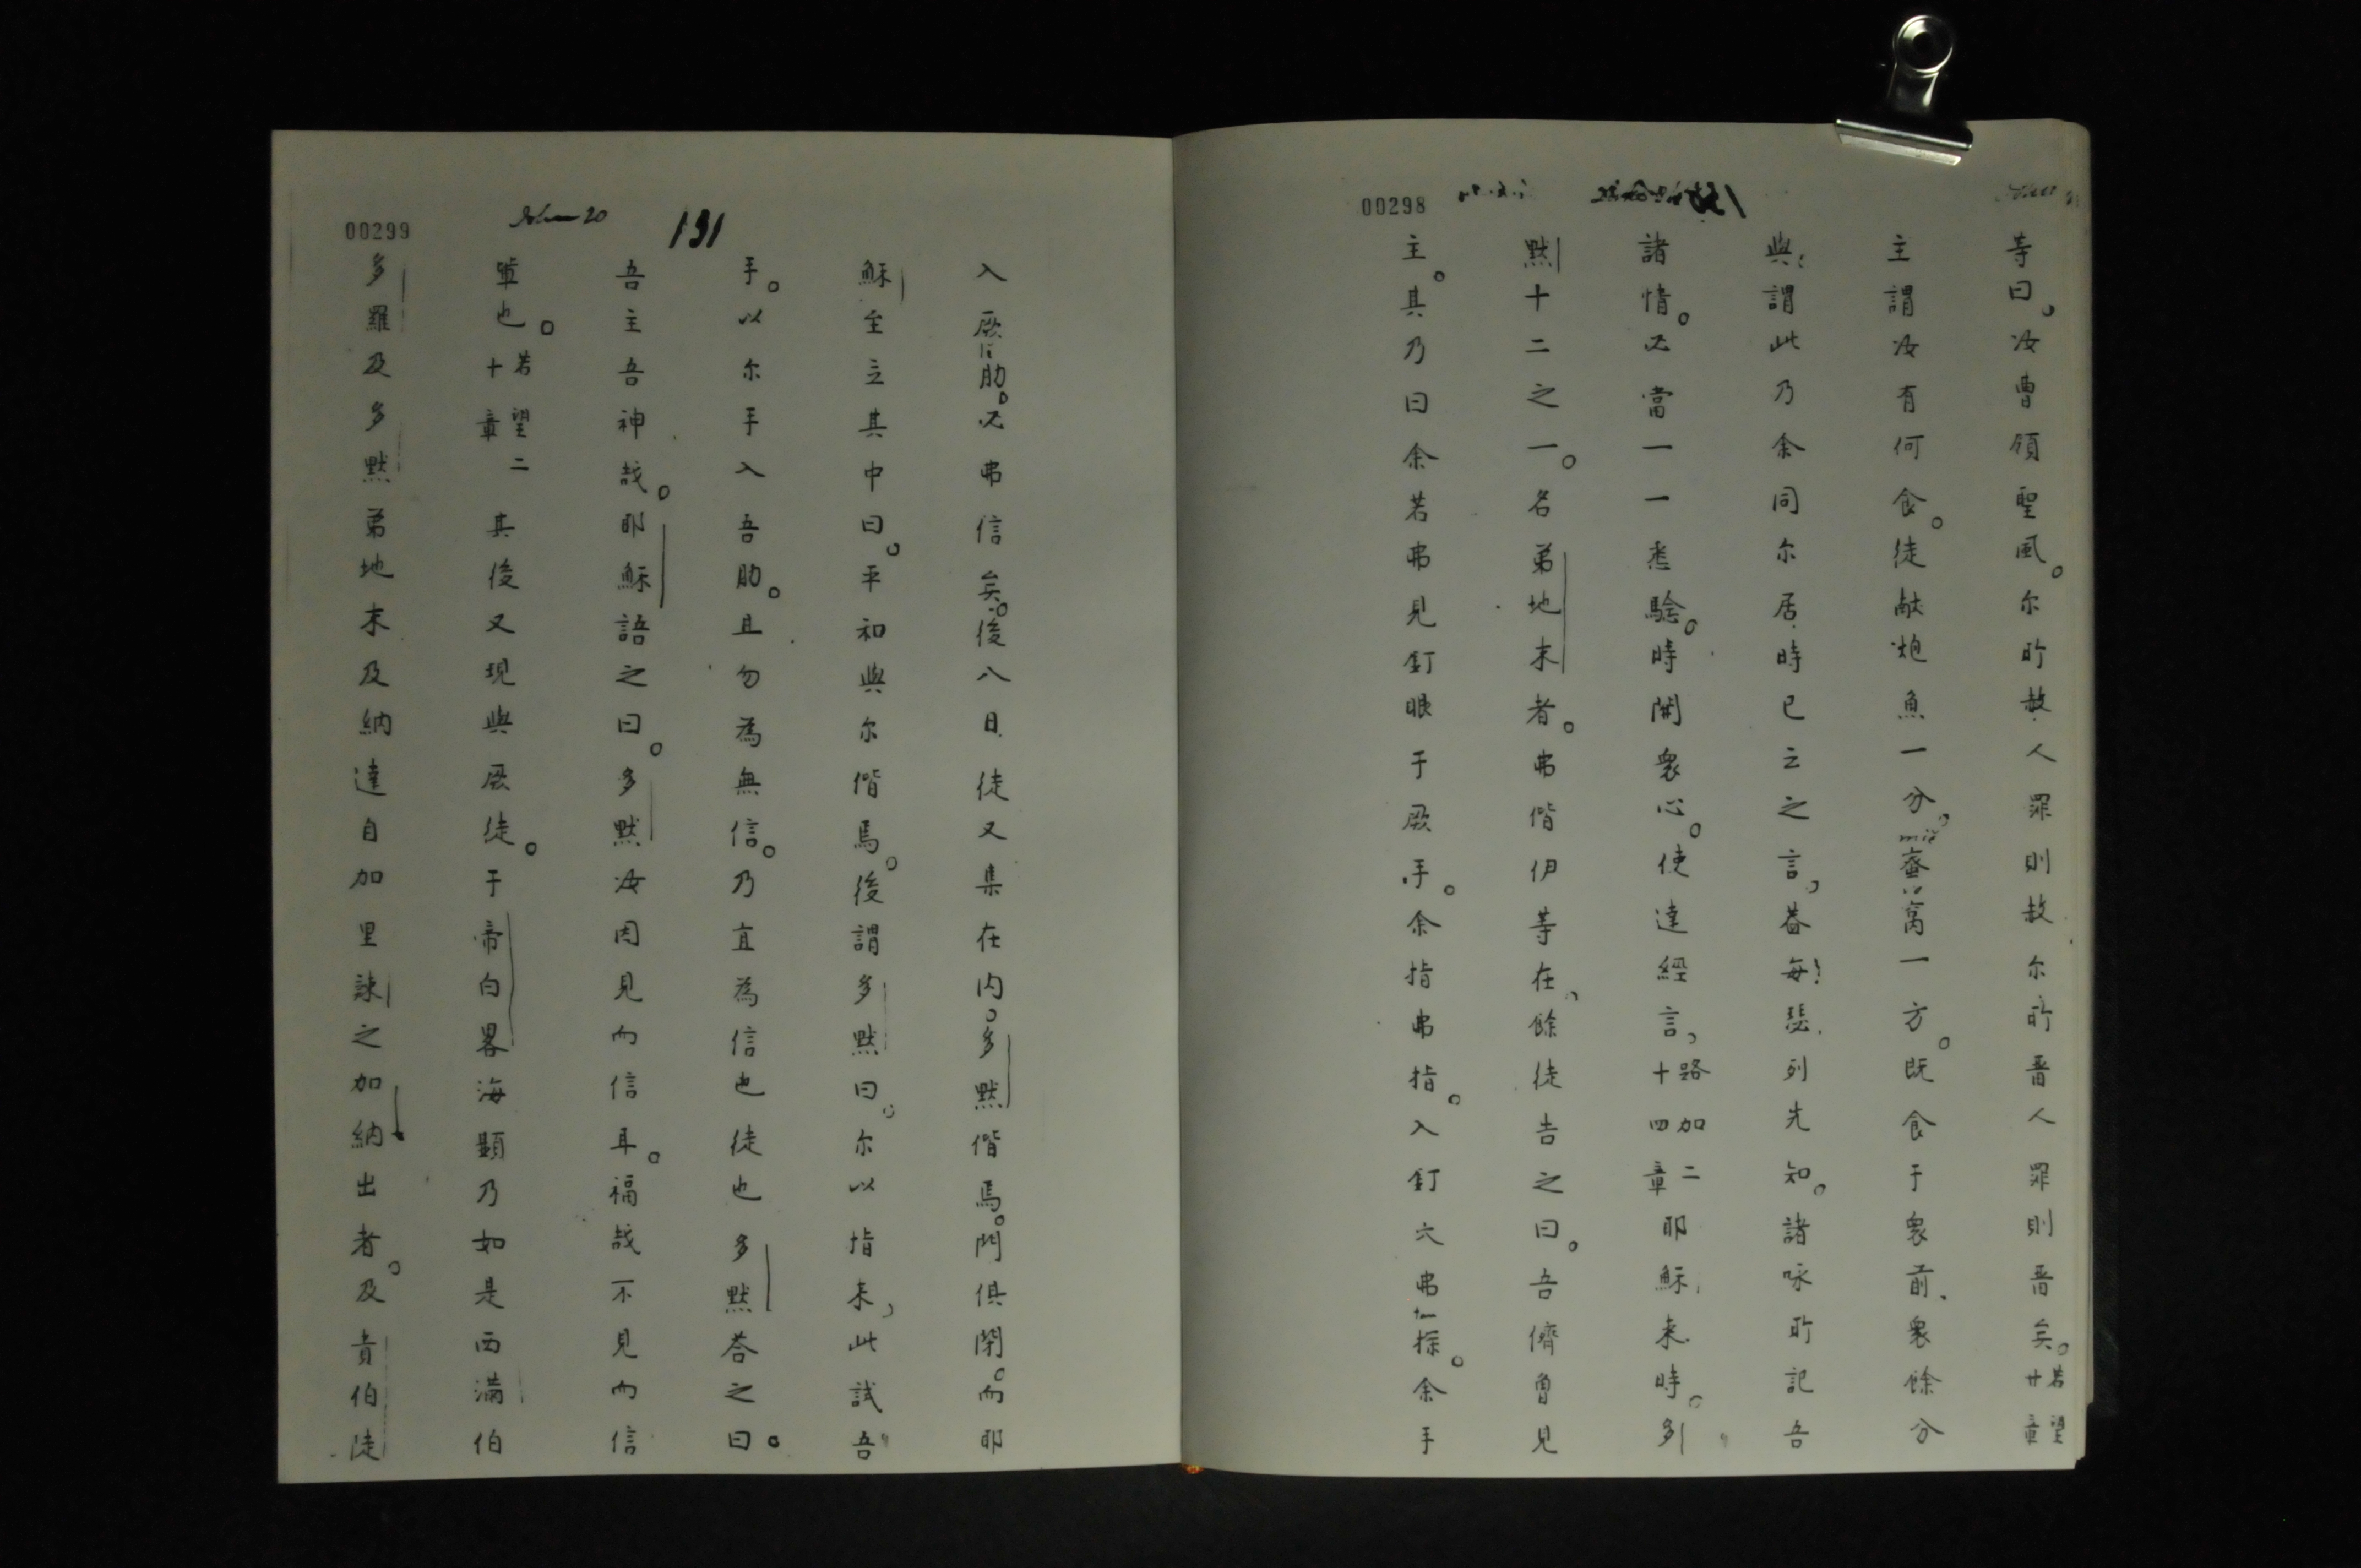 00298
等曰。汝曹領聖風。尔所赦人罪則赦尔所晋人罪則晋矣。若望廿章
主謂汝有何食。徒献炮魚一分。蜜窩一方。既食于衆前、衆餘分
與謂此乃余同尔居時已云之言、昔每瑟列先知。諸咏所記吾
諸情。必當一一悉騐。時開衆心。使達經言、路加二十四章 耶穌来時。多
默十二之一。名弟地末者。弗偕伊等在、餘徒告之曰。吾儕曾見
主。其乃曰余若弗見釘眼于厥手。余指弗指。入釘穴弗探。余手
00299
John 20
131
入厥肋。必弗信矣。後八日徒又集在内。多默偕焉。門俱閉。而耶
穌至立其中曰。平和與尔偕焉。後謂多默曰。尔以指来、此試吾
手。以尔手入吾肋。且勿為無信。乃宜為信也徒也多默荅之曰。
吾主吾神哉。耶穌語之曰。多默汝因見而信耳。福哉不見而信
軰也。若望二十章 其後又現與厥徒。于帝白畧海顯乃如是西满伯
多羅及多默弟地末及納達自加里諌之加納出者。及責伯徒